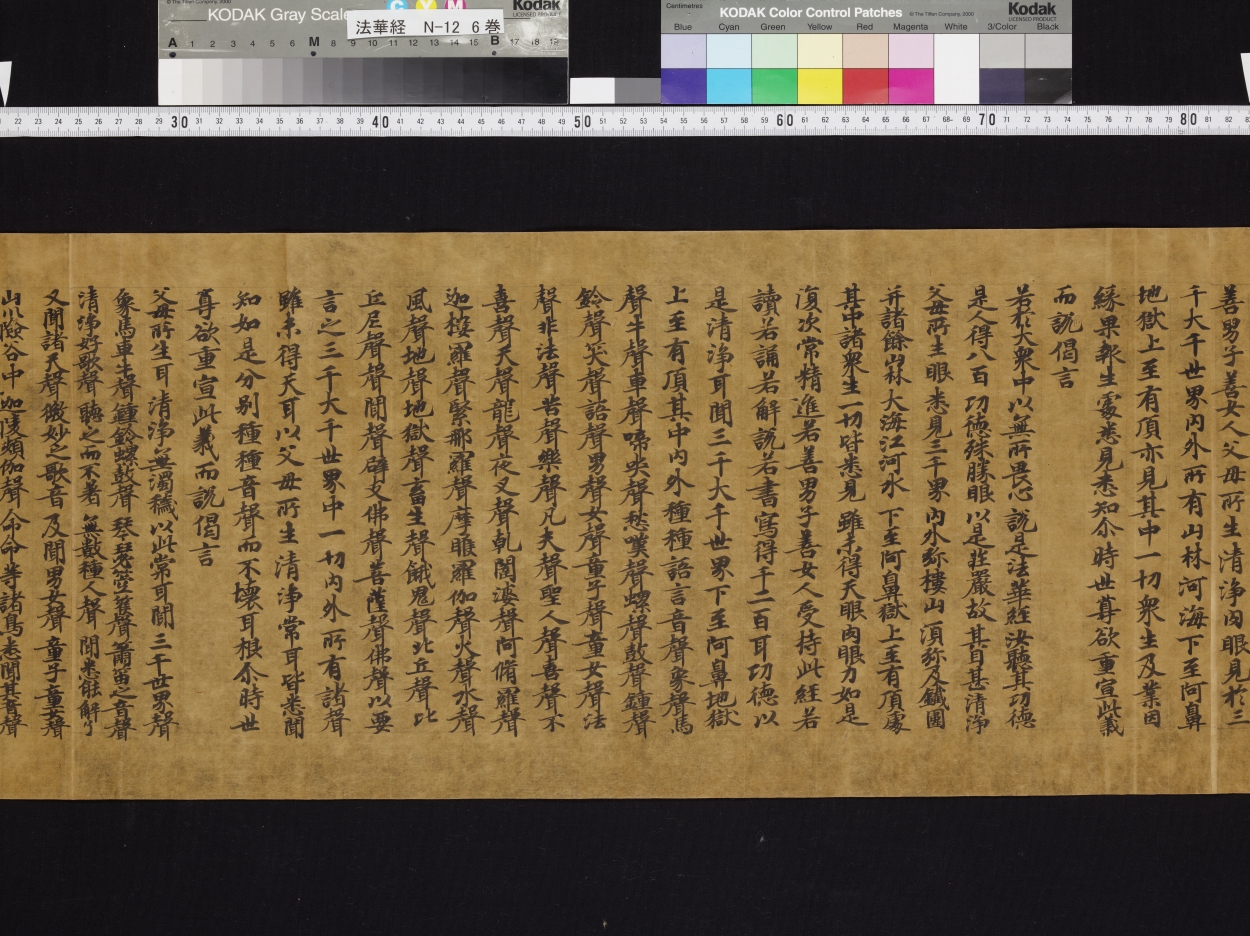 © The Tiffen Company, 2000
KODAK Gray Scale
C Y M
Kodak
LICENSED PRODUCT
法華経 N-12 6巻
A 1 2 3 4 5 6 M 8 9 10 11 12 13 14 15 B 17 18 19
Centimetres
KODAK Color Control Patches
© The Tiffen Company, 2000
Kodak
LICENSED PRODUCT
Blue Cyan Green Yellow Red Magenta White 3/Color Black
22 23 24 25 26 27 28 29 30 31 32 33 34 35 36 37 38 39 40 41 42 43 44 45 46 47 48 49 50 51 52 53 54 55 56 57 58 59 60 61 62 63 64 65 66 67 68 69 70 71 72 73 74 75 76 77 78 79 80 81 82
善男子善女人父母所生清浄肉眼見於三
千大千世界内外所有山林河海下至阿鼻
地獄上至有頂亦見其中一切衆生及業因
縁果報生處悉見悉知尒時世尊欲重宣此義
而說偈言
若於大衆中以無所畏心說是法華経汝聽其功德
是人得八百功德殊勝眼以是荘嚴故其目甚清浄
父母所生眼悉見三千界内外弥樓山須弥及鐵圍
并諸餘山林大海江河水下至阿鼻獄上至有頂處
其中諸衆生一切皆悉見雖未得天眼肉眼力如是
復次常精進若善男子善女人受持此経若
讀若誦若解說若書寫得千二百耳功德以
是清浄耳聞三千大千世界下至阿鼻地獄
上至有頂其中内外種種語言音聲象聲馬
聲牛聲車聲啼哭聲愁嘆聲螺聲鼓聲鍾聲
鈴聲笑聲語聲男聲女聲童子聲童女聲法
聲非法聲苦聲樂聲凡夫聲聖人聲喜聲不
喜聲天聲龍聲夜叉聲乹闥婆聲阿脩羅聲
迦樓羅聲緊那羅聲摩睺羅伽聲火聲水聲
風聲地聲地獄聲畜生聲餓鬼聲比丘聲比
丘尼聲聲聞聲辟支佛聲菩薩聲佛聲以要
言之三千大千世界中一切内外所有諸聲
雖未得天耳以父母所生清浄常耳皆悉聞
知如是分別種種音聲而不壞耳根尒時世
尊欲重宣此義而說偈言
父母所生耳清浄無濁穢以此常耳聞三千世界聲
象馬車牛聲鍾鈴螺鼓聲琴瑟箜篌聲簫笛之音聲
清浄好歌聲聽之而不著無數種人聲聞悉能解了
又聞諸天聲微妙之歌音及聞男女聲童子童女聲
山川險谷中迦陵頻伽聲命命等諸鳥悉聞其音聲